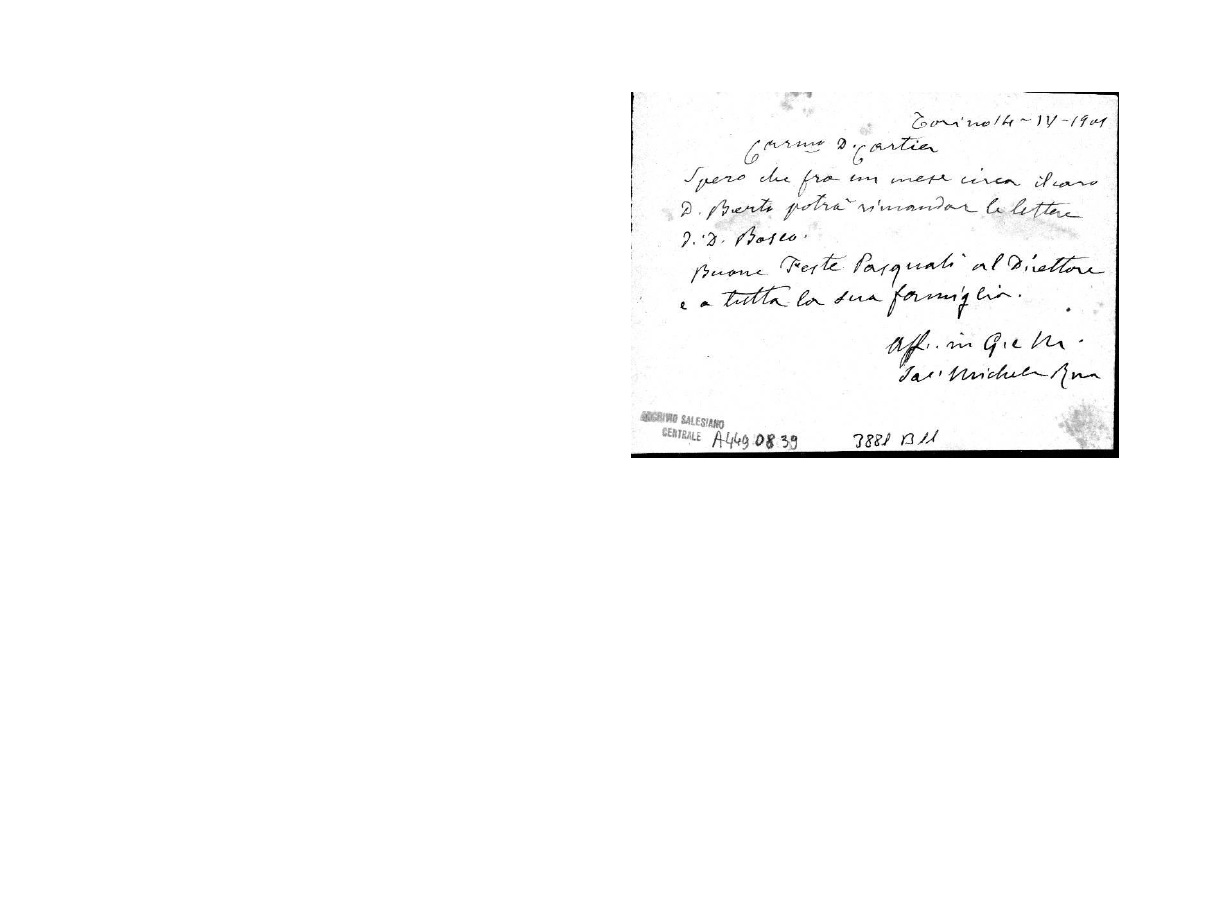 Torino 14-IV-1901
Carmo D. Cartier
Spero che fra un mese circa il caro
D. Berto potrà rimandar le lettere
di D. Bosco.
Buone Feste Pasquali al Direttore
e a tutta la sua famiglia.
Aff. in G. e M.
Sac. Michele Rua
ARCHIVIO SALESIANO
CENTRALE A449 08 39 3881 B11